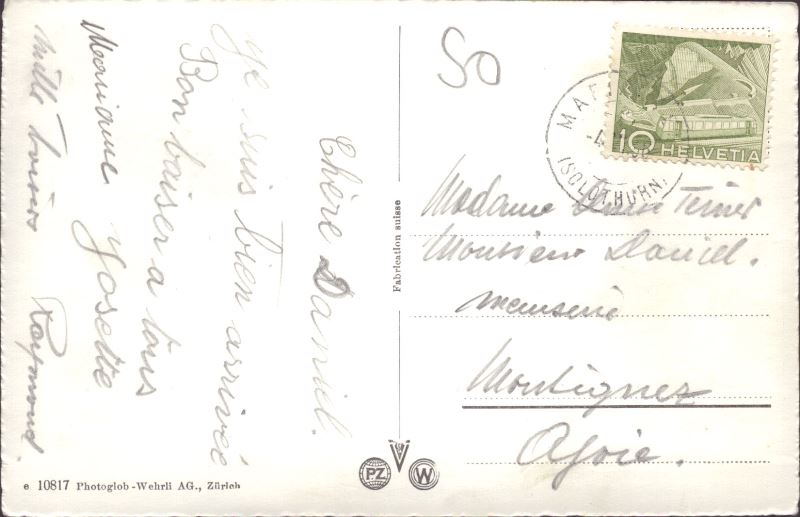 Chère Daniel.
Je suis bien arrivée
Bon baiser a tous
Marianne Josette
Mille baisers Raymond.
Fabrication suisse
PZ W
e 10817 Photoglob-Wehrli AG., Zürich
10 HELVETIA
MA
-4.
(SOLOTHURN)
Madame
Monsieur Daniel.
menuserie
Montignez
Ajoie.